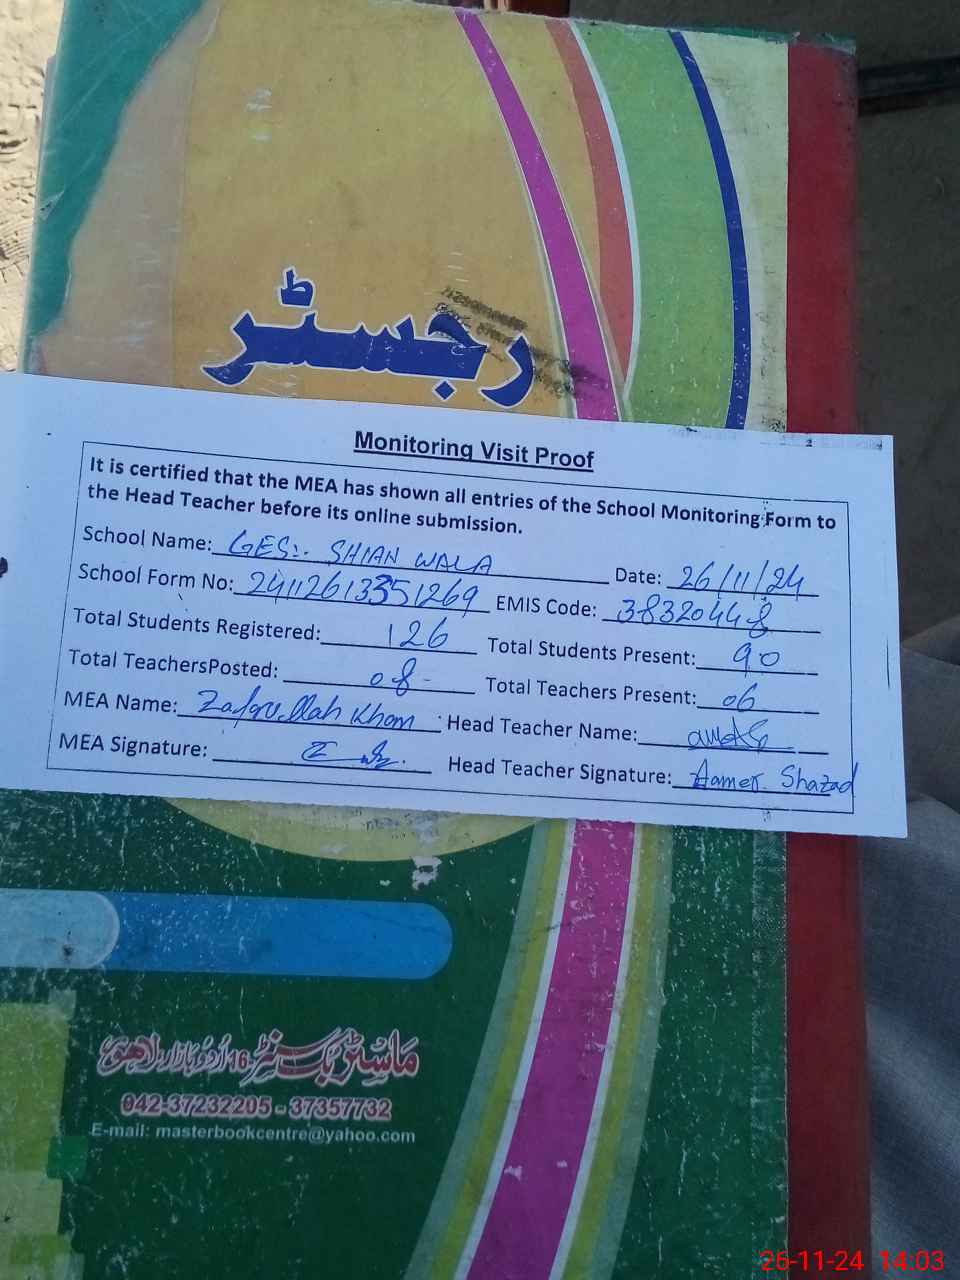 رجسٹر
Monitoring Visit Proof
It is certified that the MEA has shown all entries of the School Monitoring Form to
the Head Teacher before its online submission.
School Name: GES:. SHIAN WALA Date: 26/11/24
School Form No: 24112613351269 EMIS Code: 38320448
Total Students Registered: 126 Total Students Present: 90
Total TeachersPosted: 08 Total Teachers Present: 06
MEA Name: Zafarullah Khan Head Teacher Name:
MEA Signature: Head Teacher Signature: Aamer. Shazad
ماسٹر بک سنٹر 16 اردو بازار لاهور
042-37232205 - 37357732
E-mail: masterbookcentre@yahoo.com
26-11-24 14:03